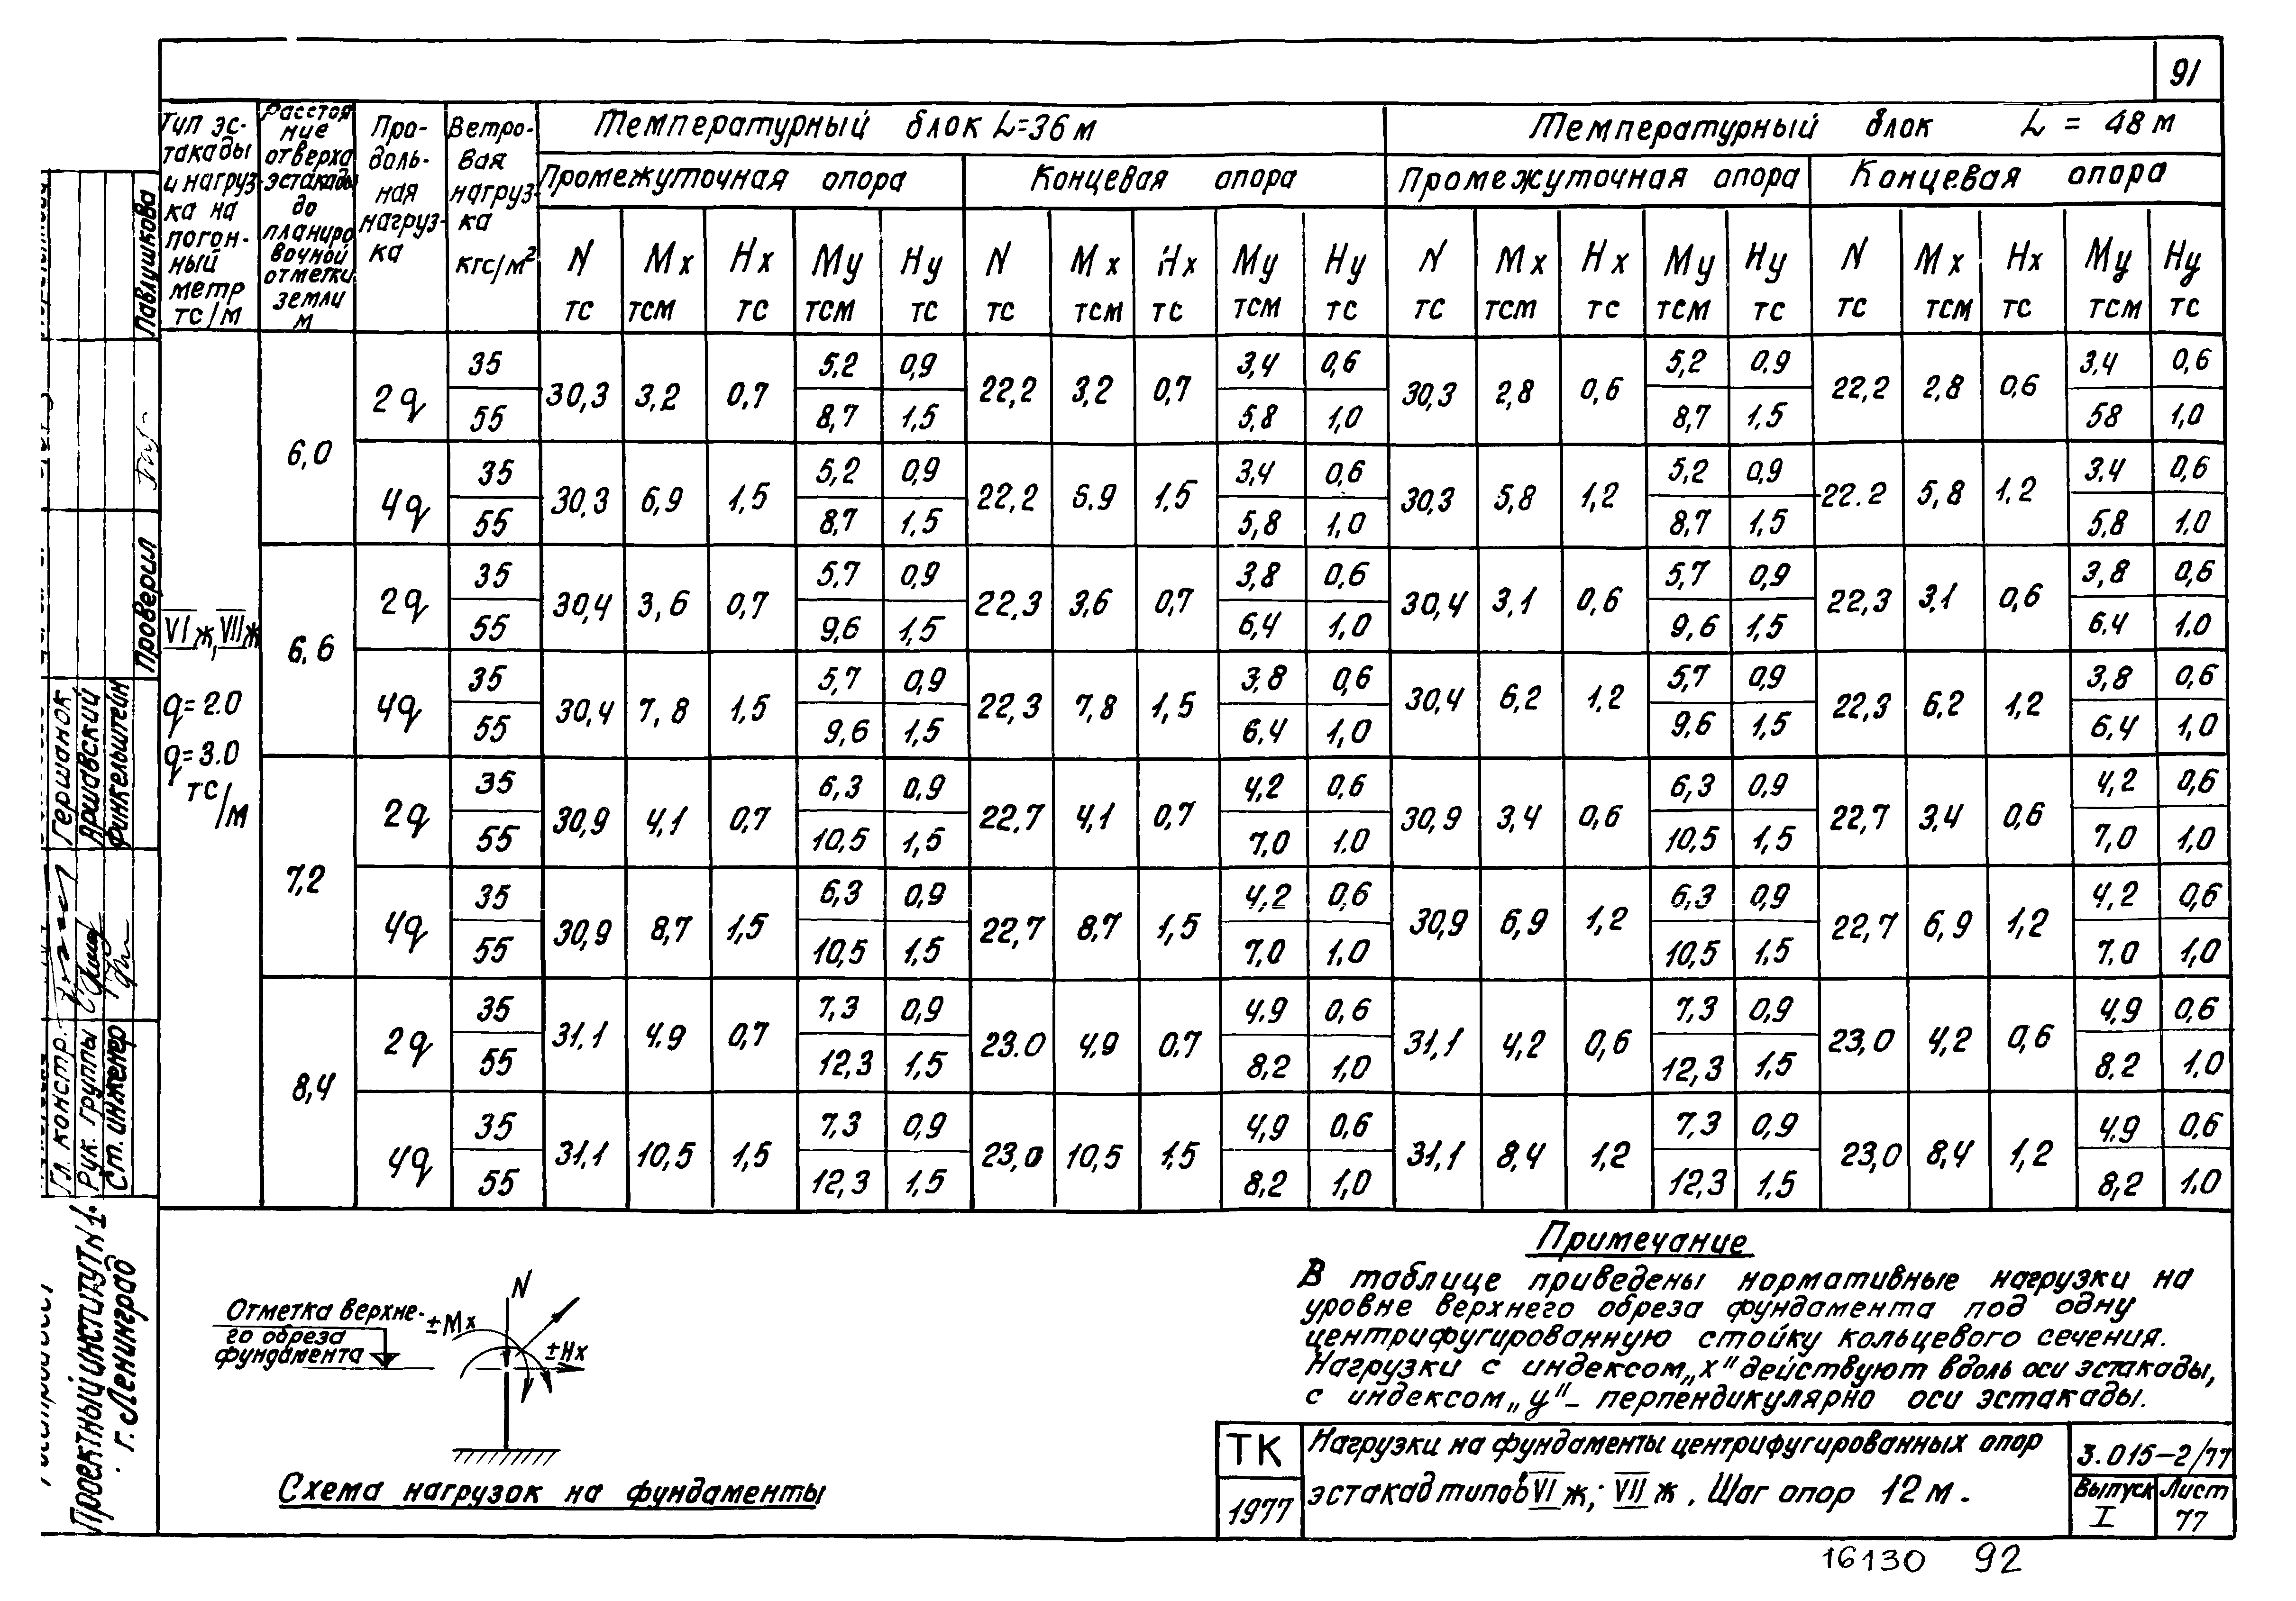 91
Тип эс-
такады
и нагруз-
ка на
погон-
ный
метр
тс/м
Расстоя
ние
от верха
эстакады
до
планиро
вочной
отметки
земли
м
Про-
доль-
ная
нагруз-
ка
Ветро-
вая
нагруз-
ка
кгс/м²
Температурный блок L=36 м
Температурный блок L = 48 м
Промежуточная опора
Концевая опора
Промежуточная опора
Концевая опора
N Mx Hx My Hy N Mx Hx My Hy N Mx Hx My Hy N Mx Hx My Hy
тс тсм тс тсм тс тс тсм тс тсм тс тс тсм тс тсм тс тс тсм тс тсм тс
VI ж, VII ж
q=2.0
q=3.0
тс/м
6,0
2q
35 5,2 0,9 3,4 0,6 5,2 0,9 3,4 0,6
30,3 3,2 0,7 22,2 3,2 0,7 30,3 2,8 0,6 22,2 2,8 0,6
55 8,7 1,5 5,8 1,0 8,7 1,5 58 1,0
4q
35 5,2 0,9 3,4 0,6 5,2 0,9 3,4 0,6
30,3 6,9 1,5 22,2 6.9 1,5 30,3 5,8 1,2 22.2 5,8 1,2
55 8,7 1,5 5,8 1,0 8,7 1,5 5,8 1,0
6,6
2q
35 5,7 0,9 3,8 0,6 5,7 0,9 3,8 0,6
30,4 3,6 0,7 22,3 3,6 0,7 30,4 3,1 0,6 22,3 3,1 0,6
55 9,6 1,5 6,4 1,0 9,6 1,5 6.4 1,0
4q
35 5,7 0,9 3,8 0,6 5,7 0,9 3,8 0,6
30,4 7,8 1,5 22,3 7,8 1,5 30,4 6,2 1,2 22,3 6,2 1,2
55 9,6 1,5 6,4 1,0 9,6 1,5 6,4 1,0
7,2
2q
35 6,3 0,9 4,2 0,6 6,3 0,9 4,2 0,6
30,9 4,1 0,7 22,7 4,1 0,7 30,9 3,4 0,6 22,7 3,4 0,6
55 10,5 1,5 7,0 1.0 10,5 1,5 7,0 1,0
4q
35 6,3 0,9 4,2 0,6 6,3 0,9 4,2 0,6
30,9 8,7 1,5 22,7 8,7 1,5 30,9 6,9 1,2 22,7 6,9 1,2
55 10,5 1,5 7,0 1.0 10,5 1,5 7,0 1,0
8,4
2q
35 7,3 0,9 4,9 0,6 7,3 0,9 4,9 0,6
31,1 4,9 0,7 23.0 4,9 0.7 31,1 4,2 0,6 23,0 4,2 0,6
55 12,3 1,5 8,2 1,0 12,3 1,5 8,2 1,0
4q
35 7,3 0,9 4,9 0,6 7,3 0,9 4,9 0,6
31,1 10,5 1,5 23,0 10,5 1.5 31,1 8,4 1,2 23,0 8,4 1,2
55 12,3 1,5 8,2 1,0 12,3 1,5 8,2 1.0
Отметка верхне-
го обреза
фундамента
N
±Mx
±Hx
Схема нагрузок на фундаменты
Примечание
В таблице приведены нормативные нагрузки на
уровне верхнего обреза фундамента под одну
центрифугированную стойку кольцевого сечения.
Нагрузки с индексом „х" действуют вдоль оси эстакады,
с индексом „у" – перпендикулярно оси эстакады.
ТК
1977
Нагрузки на фундаменты центрифугированных опор
эстакад типов VI ж; VII ж. Шаг опор 12 м.
3.015-2/77
Выпуск
I
Лист
77
16130 92
Проектный институт №1
г. Ленинград
Гл. констр.
Рук. группы
Ст. инженер
Гершанок
Аршавский
Финкельштейн
Проверил
Павлушкова